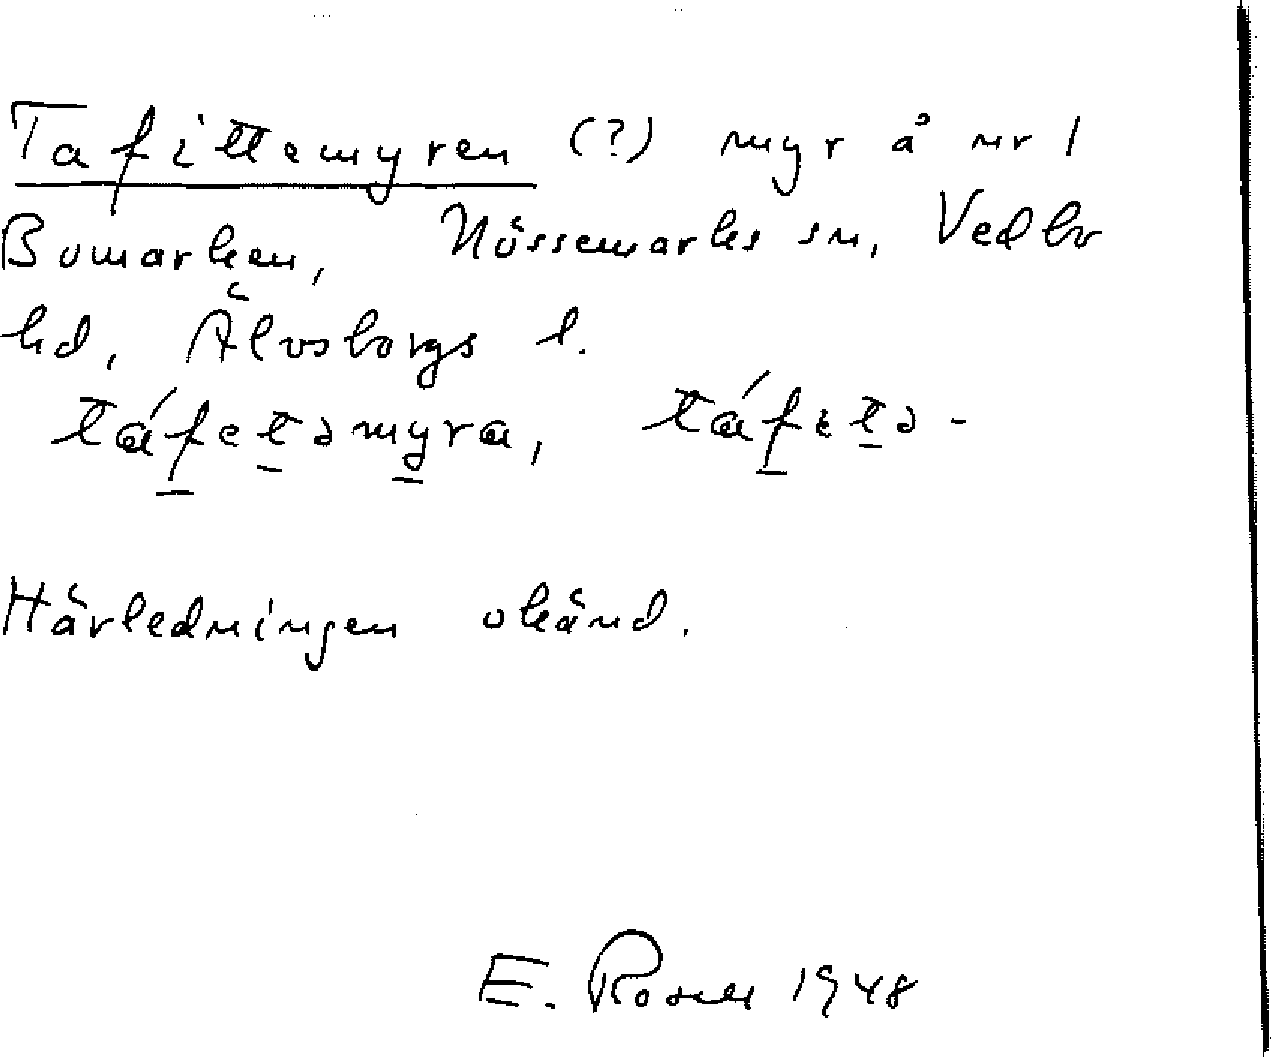 Tafittemyren (?) myr å nr 1
Bomarken, Nössemarks sn, Vedbo
hd, Älvsborgs l.
táfetəmyra, táfitə-
Härledningen okänd.
E. Rosell 1948